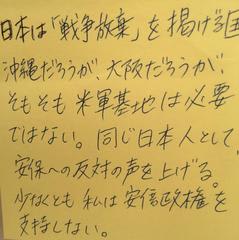 日本は「戦争放棄」を掲げる国
沖縄だろうが、大阪だろうが、
そもそも米軍基地は必要
ではない。同じ日本人として、
安保への反対の声を上げる。
少なくとも私は安倍政権を
支持しない。